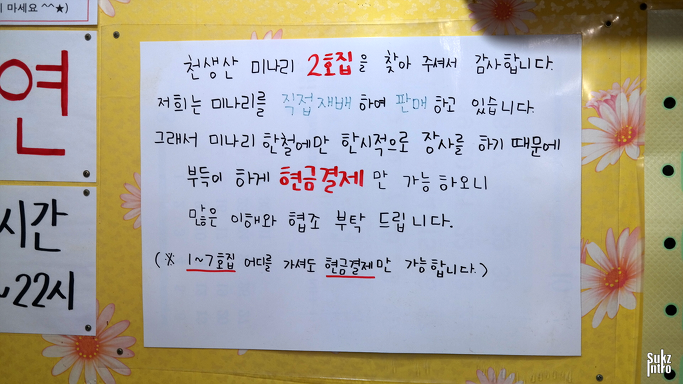 마세요 ^^★)
연
시간
~22시
천생산 미나리 2호집을 찾아 주셔서 감사합니다.
저희는 미나리를 직접재배하여 판매하고 있습니다.
그래서 미나리 한철에만 한시적으로 장사를 하기 때문에
부득이 하게 현금결제만 가능하오니
많은 이해와 협조 부탁 드립니다.
(※ 1~7호집 어디를 가셔도 현금결제만 가능합니다.)
Sukz
Intro